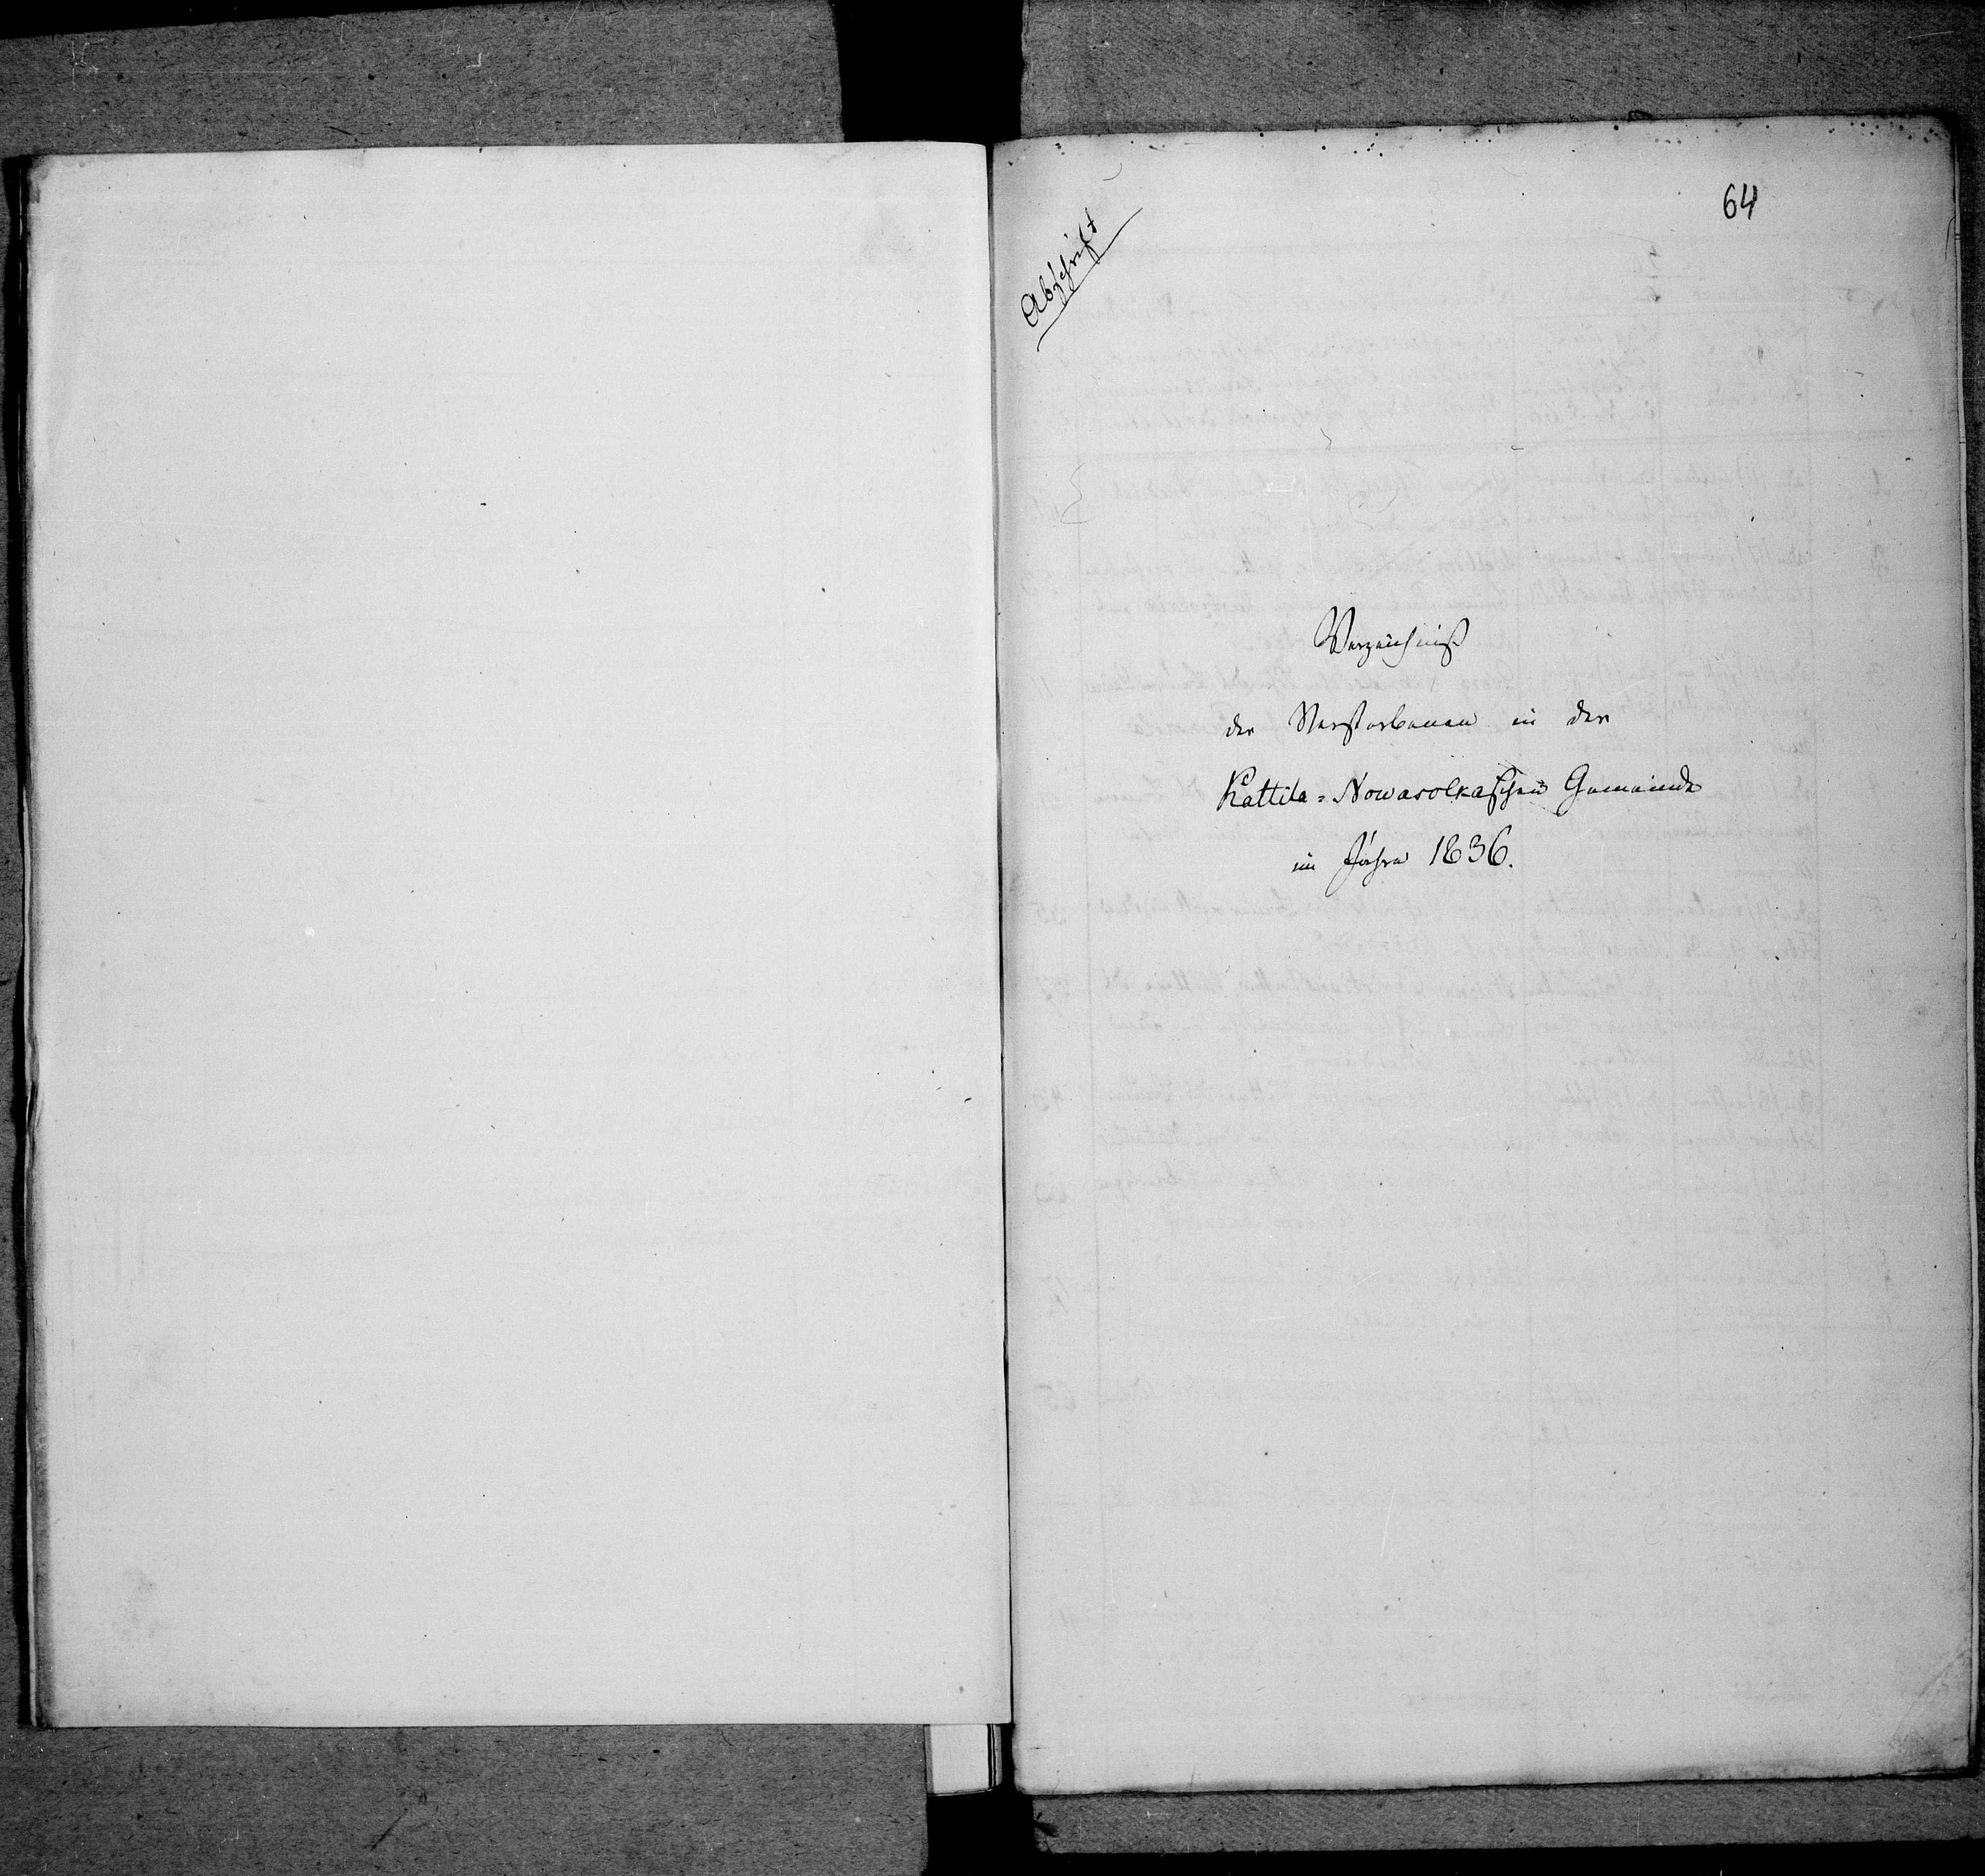 64
Abschrift
Verzeichniß
der Verstorbenen in der
Kattila=Nowasolkaschen Gemeinde
im Jahre 1836.